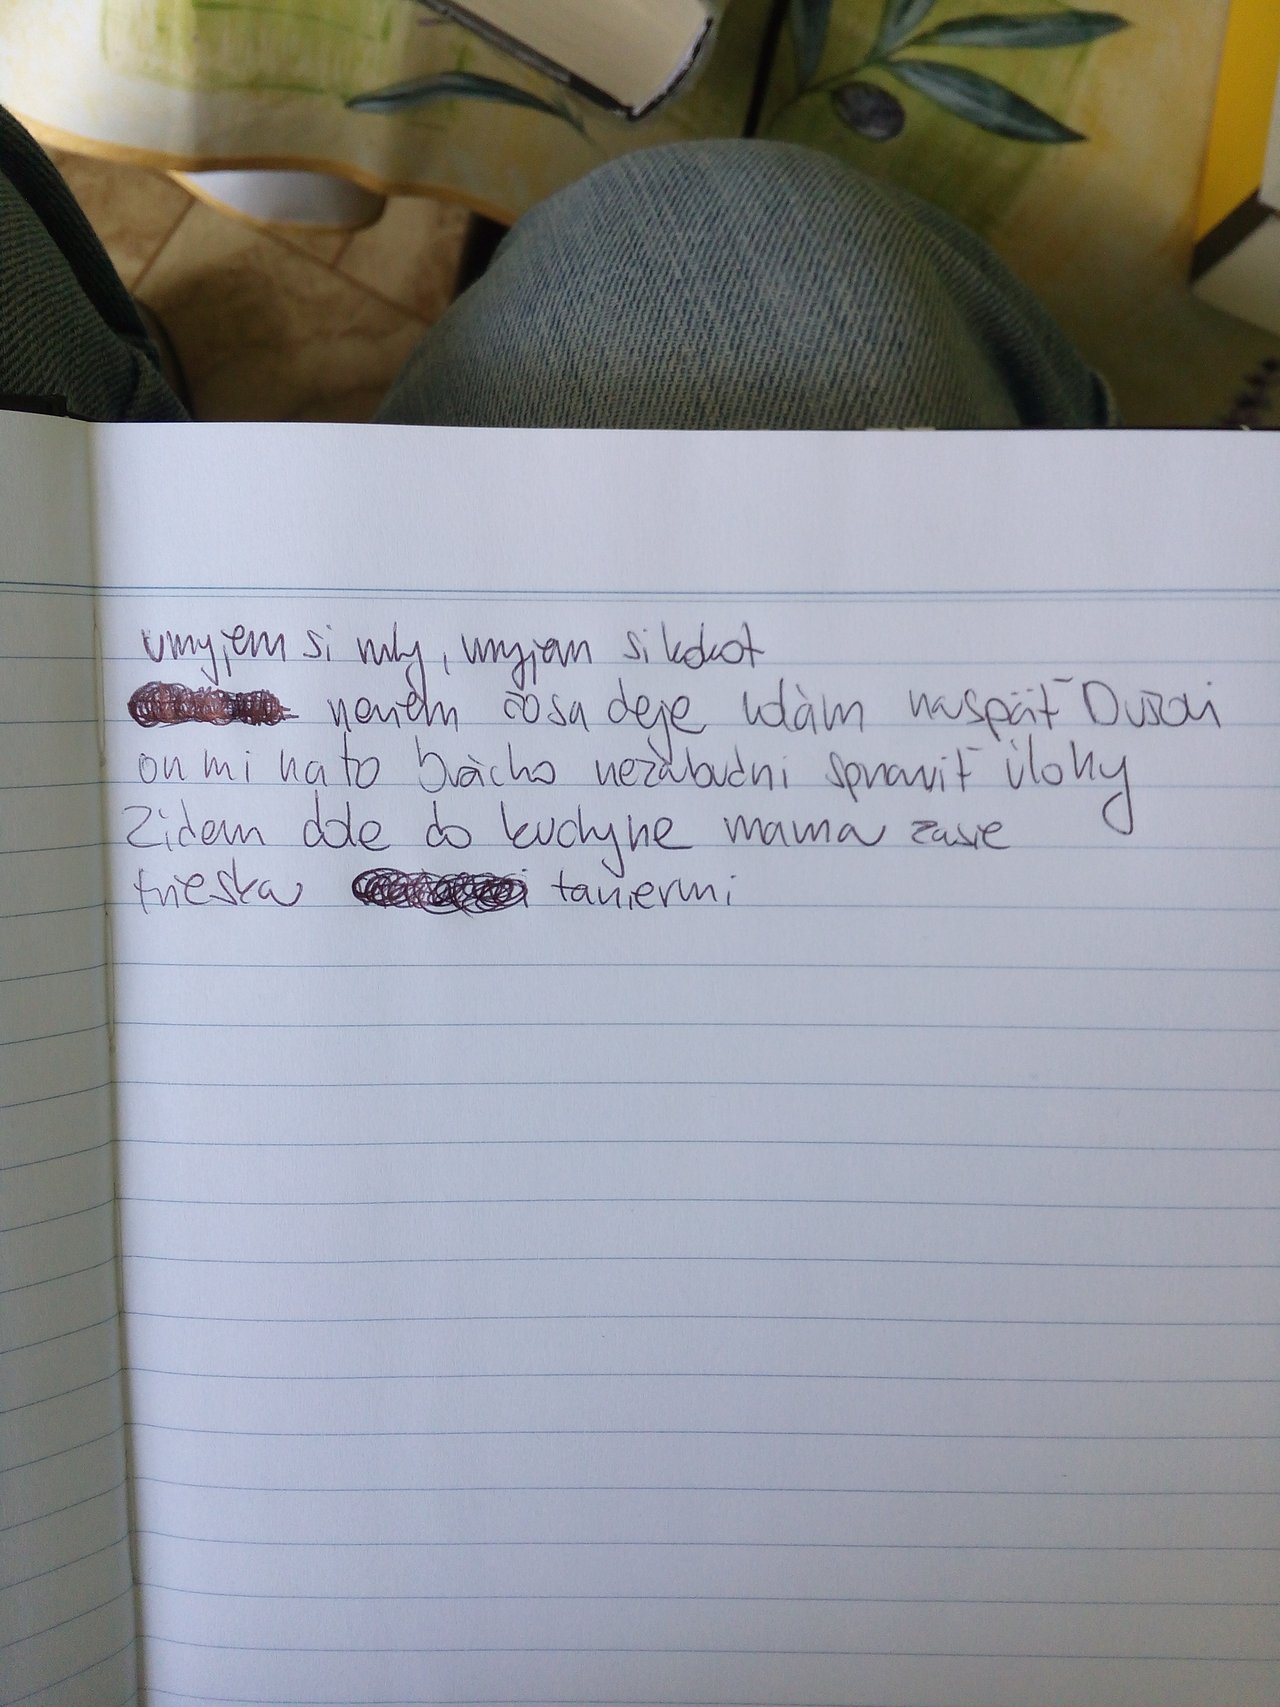 umyjem si ruky, umyjem si kokot
neviem čo sa deje volám naspäť Dušovi
on mi na to brácho nezabudni spraviť úlohy
Zídem dole do kuchyne mama zasie
trieska taniermi